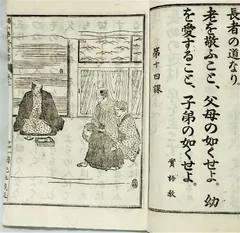 長者の道なり
老を敬ふこと、父母の如くせよ。幼
を愛すること、子弟の如くせよ。
實語教
第十四課